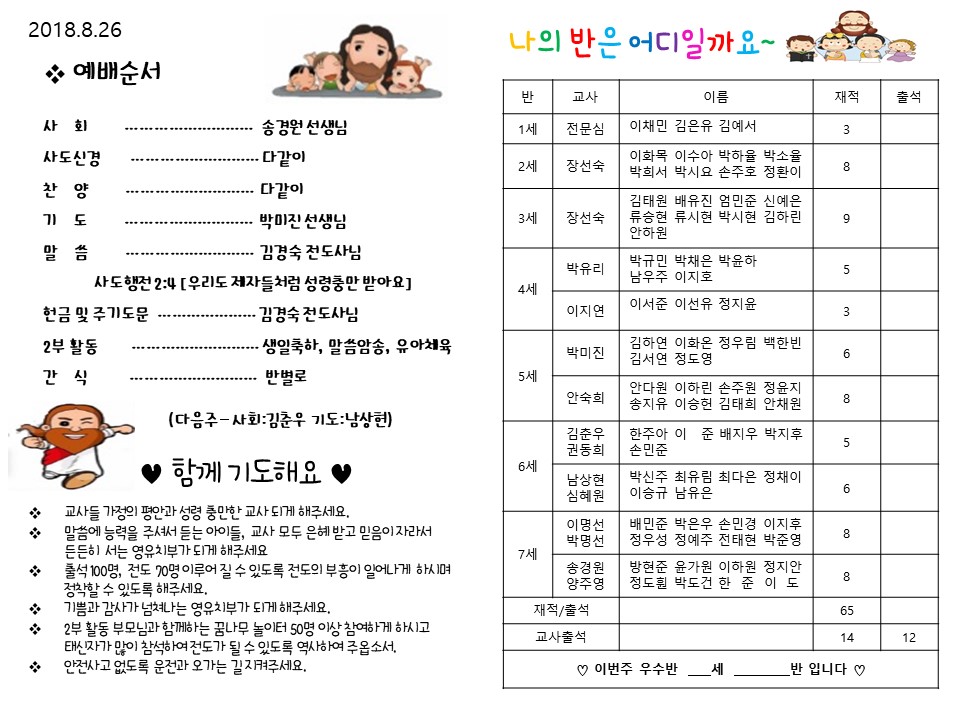 2018.8.26
❖ 예배순서
사 회 ---------------------------- 송경원 선생님
사도신경 ---------------------------- 다같이
찬 양 ---------------------------- 다같이
기 도 ---------------------------- 박미진 선생님
말 씀 ---------------------------- 김경숙 전도사님
사도행전 2:4 [우리도 제자들처럼 성령충만 받아요]
헌금 및 주기도문 --------------------- 김경숙 전도사님
2부 활동 ---------------------------- 생일축하, 말씀암송, 유아체육
간 식 ---------------------------- 반별로
(다음주-사회:김춘우 기도:남상현)
♥ 함께 기도해요 ♥
❖ 교사들 가정의 평안과 성령 충만한 교사 되게 해주세요.
❖ 말씀에 능력을 주셔서 듣는 아이들, 교사 모두 은혜 받고 믿음이 자라서
든든히 서는 영유치부가 되게 해주세요
❖ 출석 100명, 전도 70명 이루어 질 수 있도록 전도의 부흥이 일어나게 하시며
정착할 수 있도록 해주세요.
❖ 기쁨과 감사가 넘쳐나는 영유치부가 되게 해주세요.
❖ 2부 활동 부모님과 함께하는 꿈나무 놀이터 50명 이상 참여하게 하시고
태신자가 많이 참석하여 전도가 될 수 있도록 역사하여 주옵소서.
❖ 안전사고 없도록 운전과 오가는 길 지켜주세요.
나의 반은 어디일까요~
반 교사 이름 재적 출석
1세 전문심 이채민 김은유 김예서 3
2세 장선숙 이화목 이수아 박하율 박소율 8
박희서 박시요 손주호 정환이
3세 장선숙 김태원 배유진 엄민준 신예은 9
류승현 류시현 박시현 김하린
안하원
4세 박유리 박규민 박채은 박윤하 5
남우주 이지호
이지연 이서준 이선유 정지윤 3
5세 박미진 김하연 이화온 정우림 백한빈 6
김서연 정도영
안숙희 안다원 이하린 손주원 정윤지 8
송지유 이승헌 김태희 안채원
6세 김춘우 한주아 이 준 배지우 박지후 5
권동희 손민준
남상현 박신주 최유림 최다은 정채이 6
심혜원 이승규 남유은
7세 이명선 배민준 박은우 손민경 이지후 8
박명선 정우성 정예주 전태현 박준영
송경원 방현준 윤가원 이하원 정지안 8
양주영 정도훤 박도건 한 준 이 도
재적/출석 65
교사출석 14 12
♡ 이번주 우수반 ___세 ________반 입니다 ♡